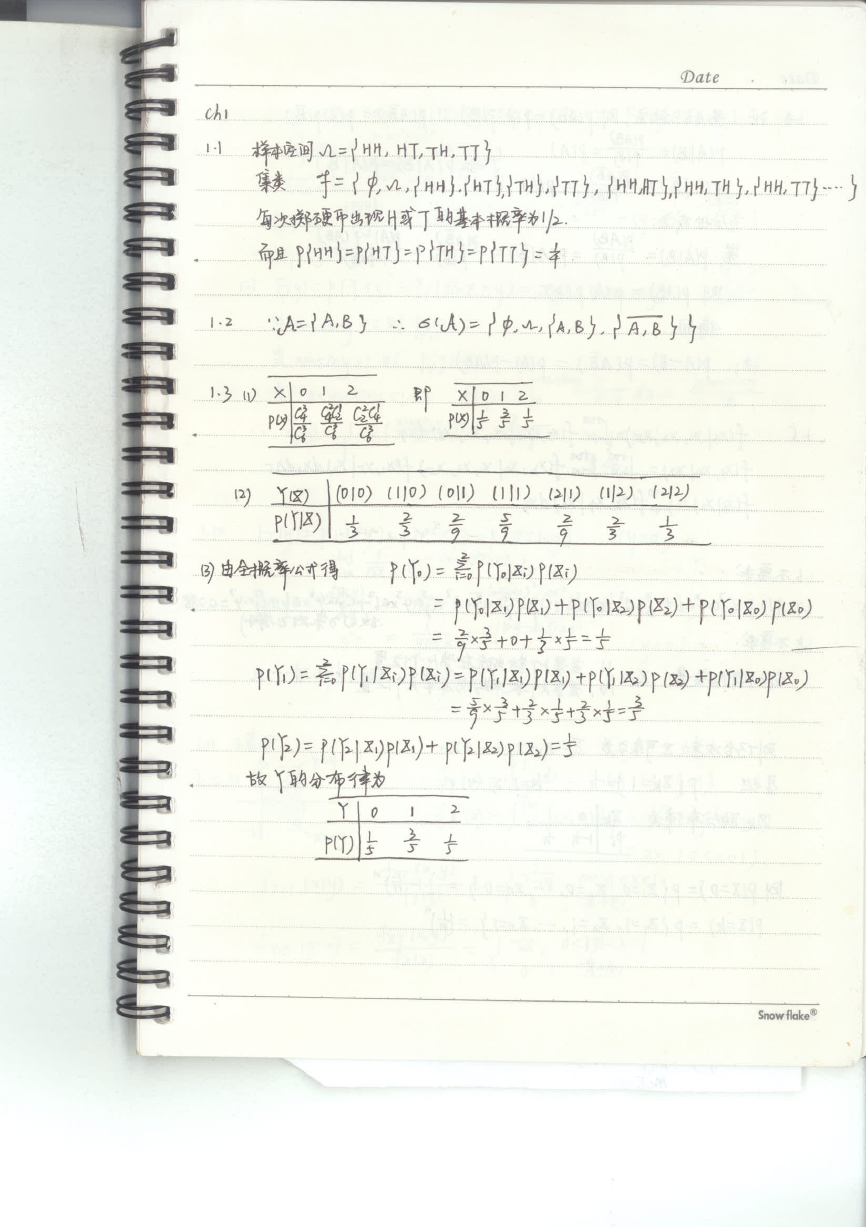 Date
ch1
1.1 样本空间 Ω={HH, HT, TH, TT}
集类 F={φ, Ω, {HH}, {HT}, {TH}, {TT}, {HH,HT}, {HH,TH}, {HH,TT} ····· }
每次掷硬币出现H或T的基本概率为1/2.
而且 P{HH}=P{HT}=P{TH}=P{TT}=1/4
1.2 ∵A={A,B} ∴ σ(A)={φ, Ω, {A,B}, {\overline{A,B}}}
1.3 (1) X 0 1 2 即 X 0 1 2
P(X) 1/5 3/5 1/5
(2) Y(X) (0|0) (1|0) (0|1) (1|1) (2|1) (1|2) (2|2)
P(Y|X) 1/3 2/3 2/9 5/9 2/9 2/3 1/3
(3) 由全概率公式得 P(Y₀)=Σ_{i=0}^{2} P(Y₀|Xi)P(Xi)
= P(Y₀|X₁)P(X₁)+P(Y₀|X₂)P(X₂)+P(Y₀|X₀)P(X₀)
= 2/9×3/5+0+1/3×1/5=1/5
P(Y₁)=Σ_{i=0}^{2} P(Y₁|Xi)P(Xi)=P(Y₁|X₁)P(X₁)+P(Y₁|X₂)P(X₂)+P(Y₁|X₀)P(X₀)
=5/9×3/5+2/3×1/5+2/3×1/5=3/5
P(Y₂)=P(Y₂|X₁)P(X₁)+P(Y₂|X₂)P(X₂)=1/5
故Y的分布律为
Y 0 1 2
P(Y) 1/5 3/5 1/5
Snowflake®